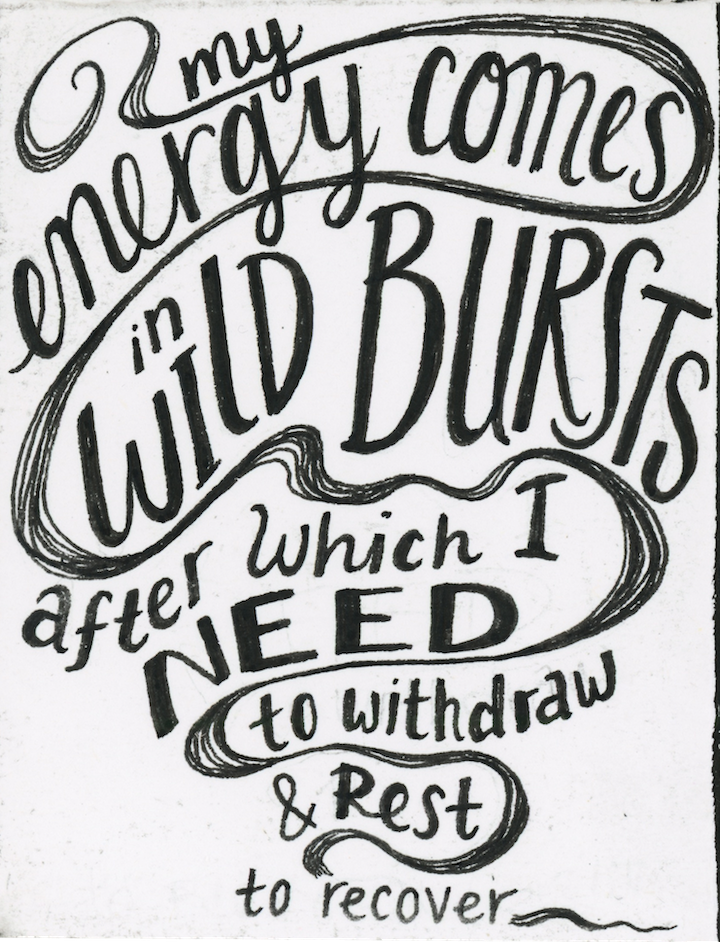 my
energy comes
in
WILD BURSTS
after which I
NEED
to withdraw
& Rest
to recover